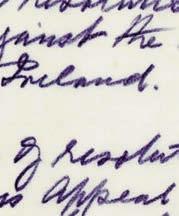 against the
Ireland.
of resolut
as Appeal